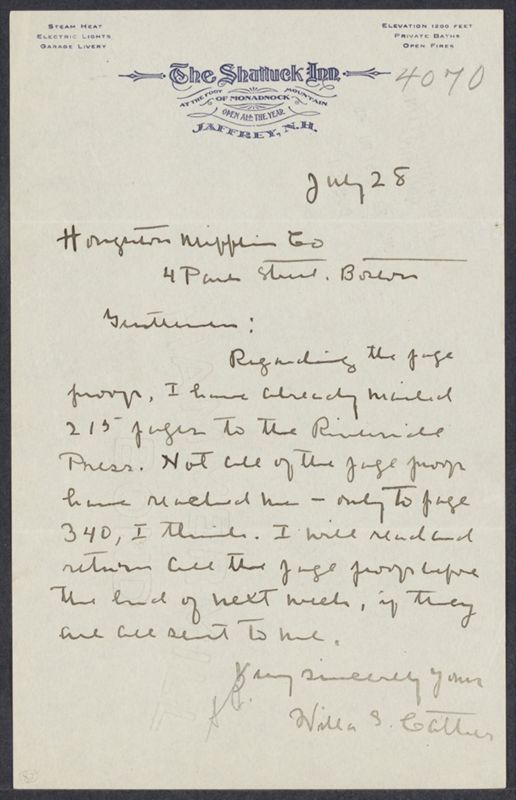 STEAM HEAT
ELECTRIC LIGHTS
GARAGE LIVERY
ELEVATION 1200 FEET
PRIVATE BATHS
OPEN FIRES
The Shattuck Inn
4070
AT THE FOOT OF MONADNOCK MOUNTAIN
OPEN ALL THE YEAR
JAFFREY, N.H.
July 28
Houghton Mifflin Co
4 Park Street. Boston
Gentlemen:
Regarding the page
proofs, I have already mailed
215 pages to the Riverside
Press. Not all of the page proofs
have reached me – only to page
340, I think. I will read and
return all the page proofs before
the end of next week, if they
are all sent to me.
Very sincerely yours
Willa S. Cather